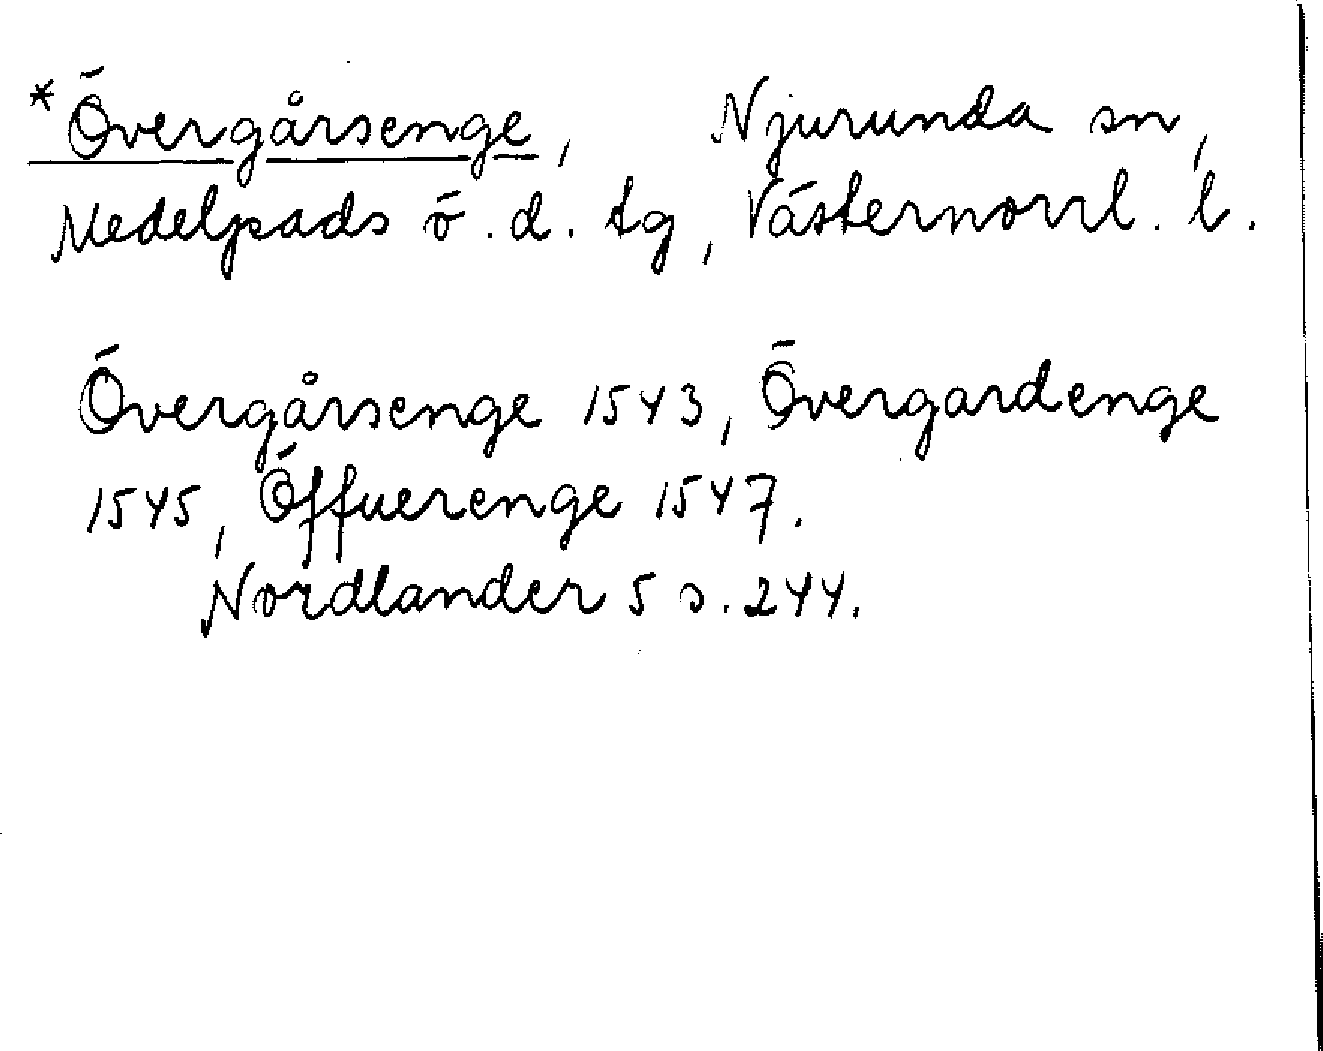 *Övergårsenge, Njurunda sn,
Medelpads ö. d. tg, Västernorrl. l.
Övergårsenge 1543, Övergardenge
1545, Öffuerenge 1547.
Nordlander 5 s. 244.